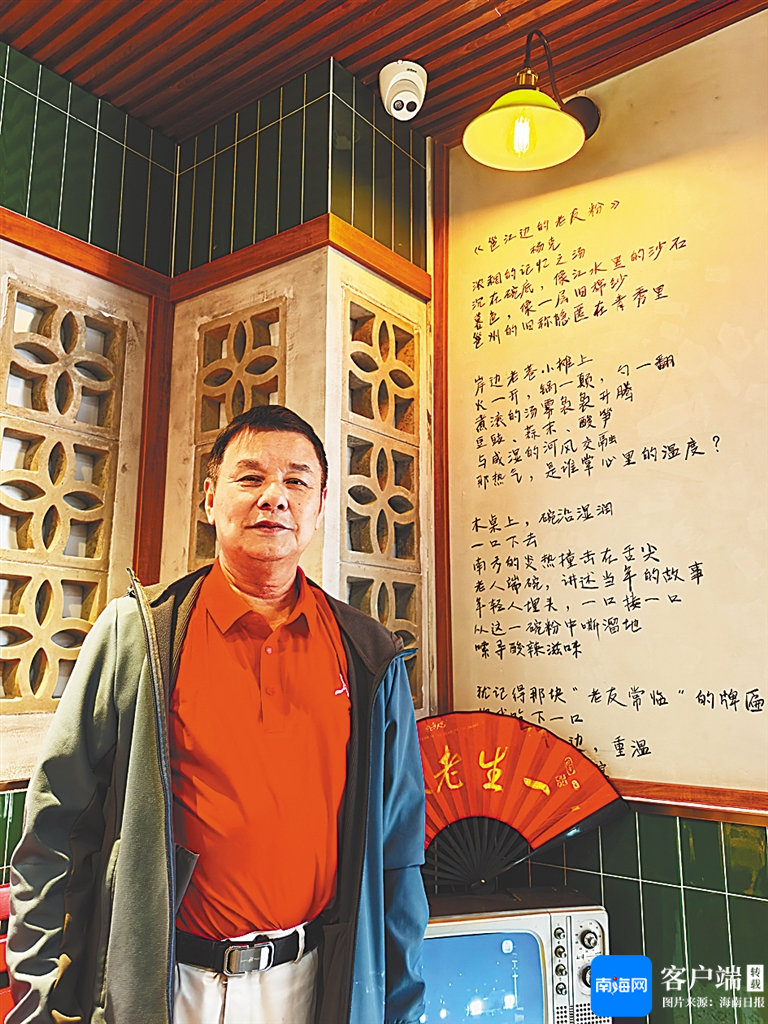 《邕江边的老友粉》
杨克
浓稠的记忆之汤
沉在碗底，像江水里的沙石
暮色，像一层旧棉纱
邕州的旧称隐匿在青秀里
岸边老巷小摊上
火一开，锅一颠，勺一翻
煮滚的汤雾袅袅升腾
豆豉、蒜末、酸笋
与咸湿的河风交融
那热气，是谁掌心里的温度？
木桌上，碗沿湿润
一口下去
南方的炎热撞击在舌尖
老人端碗，讲述当年的故事
年轻人埋头，一口接一口
从这一碗粉中嘶溜地
嗦导酸辣滋味
犹记得那块“老友常临”的牌匾
下一口
边，重温
老生一
南海网
客户端
转载
图片来源：海南日报